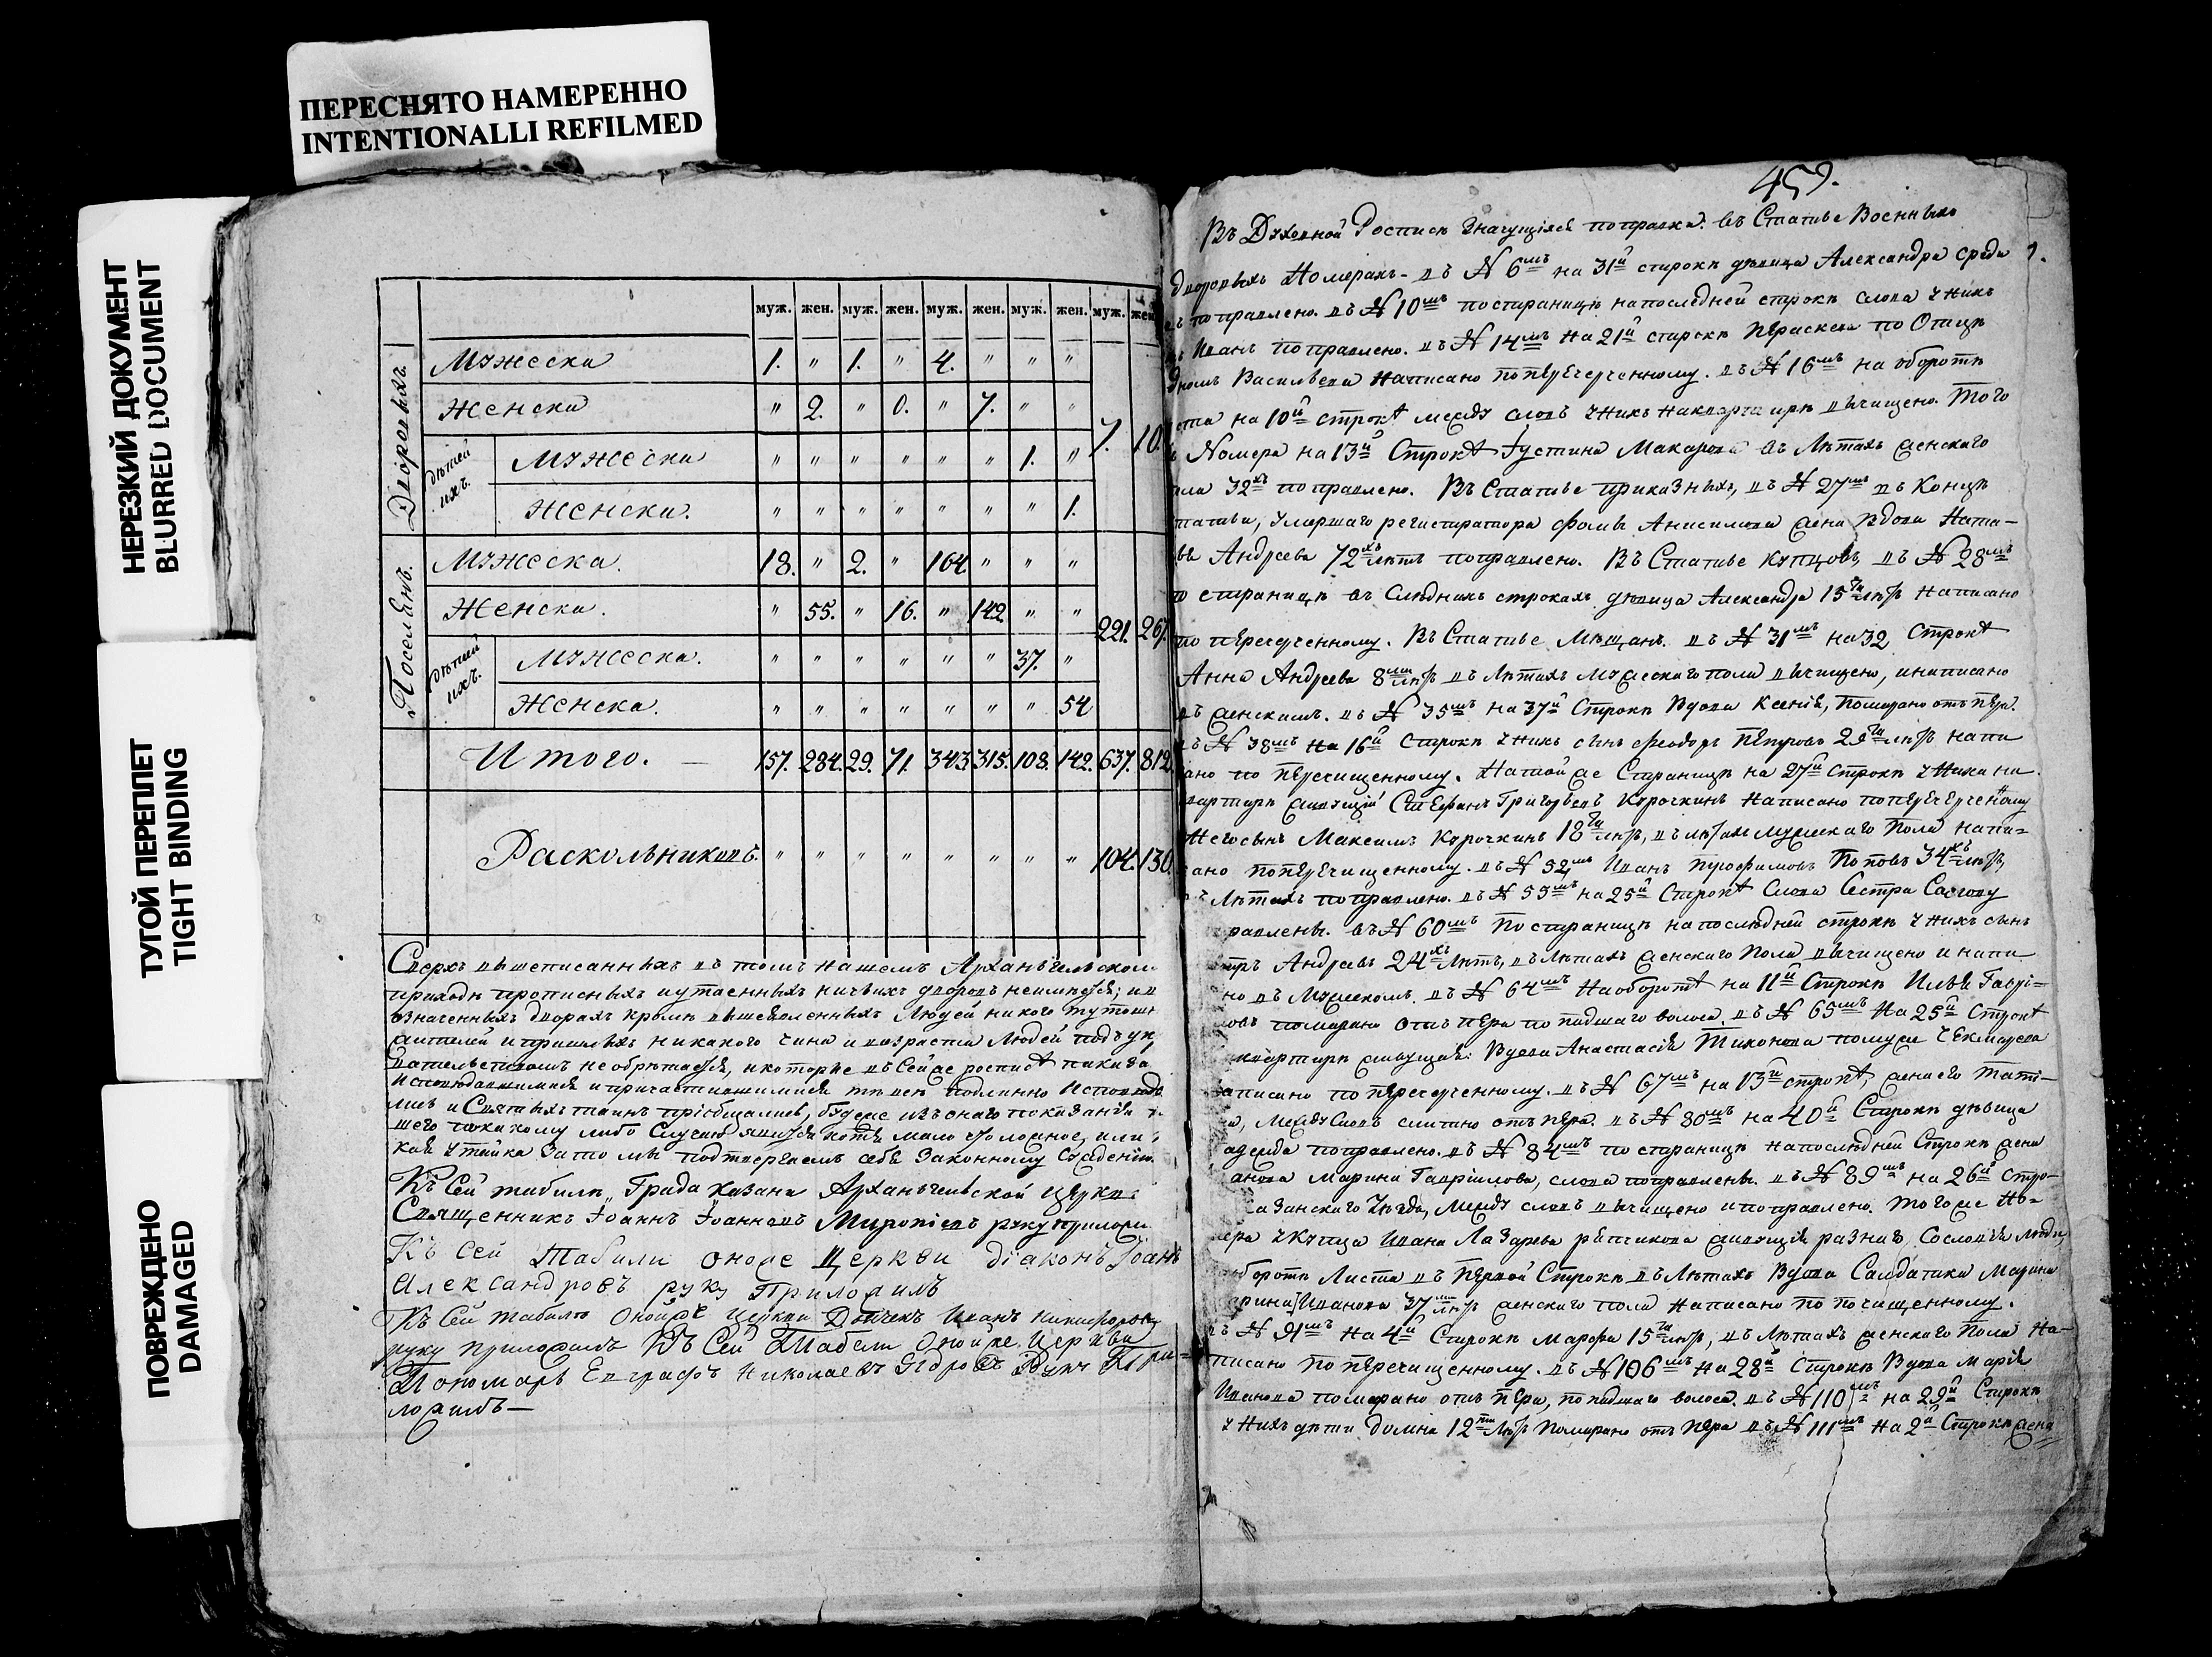 ПЕРЕСНЯТО НАМЕРЕННО
INTENTIONALLI REFILMED
НЕРЕЗКИЙ ДОКУМЕНТ
BLURRED DOCUMENT
ТУГОЙ ПЕРЕПЛЕТ
TIGHT BINDING
ПОВРЕЖДЕНО
DAMAGED
муж. жен. муж. жен. муж. жен. муж. жен. муж. жен
Дворовыхъ.
Мужеска 1. " 1. " 4. " " "
Женска " 2. " 0. " 7. " "
7. 10.
дѣтей ихъ.
Мужеска " " " " " " 1. "
Женска. " " " " " " " 1.
Поселянъ.
Мужеска. 18. " 2. " 164. " " "
Женска. " 55. " 16. " 142. " "
221. 267.
дѣтей ихъ.
Мужеска. " " " " " " 37. "
Женска. " " " " " " " 54
Итого. — 157. 284. 29. 71. 343. 315. 108. 142. 637. 812.
Раскольниковъ. " " " " " " " " 104. 130.
Сверхъ вышеписанныхъ въ томъ нашемъ Архангельском
приходѣ прописныхъ и утаенныхъ ничьихъ дворовъ неимѣется; и в
означенныхъ дворахъ кромѣ вышеявленныхъ Людей никого тутошн
жителей и пришлыхъ никакого чина и возраста Людей подъ ук
вательствомъ не обрѣтается, и которые въ Сей же росписѣ показа
Исповѣдавшимися и причастившимися тѣ всѣ подлинно Исповѣдо
лись и Святыхъ таинъ пріобщались, будеже изъ снаго показанія
шего по какому либо Случаю явится хотя мало что ложное, или
кая утайка За то мы подтвергаемъ себя Законному Сужденію.
Къ Сей табели Града Казани Архангельской церкви
Священникъ Іоаннъ Іоанновъ Миропіевъ руку приложи
Къ сей Табели оноже Церкви діаконъ Іоанъ
Александровъ руку Приложилъ
Къ Сей табелѣ Онойже Церкви Дьячекъ Иванъ Никифоровъ
руку приложилъ Къ Сей Табели Онойже Церкви
Пономарь Евграфъ Николаевъ Руку При-
ложилъ —
459.
Въ Духовной Росписи Значущіяся поправки: въ Статье Военныхъ
дворовыхъ Номерахъ - въ N 6мъ на 31й строкѣ дѣвица Александра среди
поправлено. въ N 10мъ по страницѣ на последней строкѣ слова у нихъ
Иванъ поправлено. въ N 14мъ На 21й строкѣ Параскева по Отцѣ
Васильева Написано поперечерченному. въ N 16мъ на оборотѣ
ста на 10й строкѣ между словъ у нихъ на квартирѣ вычищено. Того
Номера на 13й Строкѣ Іустина Макарова въ Лѣтахъ женскаго
32хъ поправлено. Въ Статье приказныхъ, въ N 27мъ въ Концѣ
статьи, умершаго регистратора Фомы Анисимова жена Вдова Ната-
Андреева 72хъ лѣтъ поправлено. Въ Статье купцовъ, въ N 28мъ
страницѣ въ строкахъ дѣвица Александра 15ти лѣтъ написано
по пересученному. Въ Статье Мѣщанъ. въ N 31мъ на 32 Строкѣ
Анна Андреева 8ми лѣтъ въ Лѣтахъ мужескаго пола вычищено, и написано
въ женскомъ. въ N 35мъ на 37й Строкѣ Вдова Ксенія, Помарано отъ пера.
въ N 38мъ На 16й Строкѣ у нихъ сынъ Феодоръ Петровъ 29ти лѣтъ напи
сано по перечищенному. На той же Страницѣ на 27й Строкѣ у Нихъ на
квартирѣ живущій Стефанъ Григорьевъ Курочкинъ Написано поперечерченному
Его сынъ Максимъ Курочкинъ 18ти лѣтъ, въ лѣтахъ мужескаго Пола напи-
сано поперечищенному. въ N 52мъ Иванъ Трофимовъ Поповъ 34хъ лѣтъ,
Лѣтахъ поправлено. въ N 55мъ на 25й Строкѣ Слова Сестра
равлены. въ N 60мъ По страницѣ на послѣдней строкѣ у Нихъ сынъ
Андреевъ 24хъ Лѣтъ, въ Лѣтахъ женскаго Пола вычищено и напи
но въ Мужескомъ. въ N 64мъ На оборотѣ на 11й Строкѣ Илья Гаврі-
ловъ помарано отъ пера по подшаго волоса. въ N 65мъ На 25й Строкѣ
квартирѣ живущая: Вдова Анастасія Тихонова по мужѣ Чекмарева
написано по пересученному. въ N 67мъ на 13й строкѣ, жена его Тати-
а, между Словъ слитно отъ пера. въ N 80мъ на 40й Строкѣ дѣвица
адежда поправлено. въ N 84мъ по страницѣ на послѣдней Строкѣ жена
анова Марина Гавріилова, слова поправлены. въ N 89мъ на 26й Стро-
казанскаго Уѣзда, Между словъ вычищено и поправлено. того же Но-
мера у Купца Ивана Лазарева рѣшникова живущія разныхъ Сословія люди,
оборотѣ Листа въ первой Строкѣ въ Лѣтахъ Вдова Салдатика Марина
Иванова 37ми лѣтъ женскаго пола написано по почищенному.
въ N 91мъ на 4й Строкѣ Марфа 15ти лѣтъ, въ Лѣтахъ женскаго Пола На-
писано по перечищенному. въ N 106мъ на 28й Строкѣ Вдова Марія
Иванова помарано отъ пера, по подшаго волоса. въ N 110мъ на 29й Строкѣ
у Нихъ дѣти Домна 12ти лѣтъ Помарано отъ пера въ N 111мъ на 2й Строкѣ жена